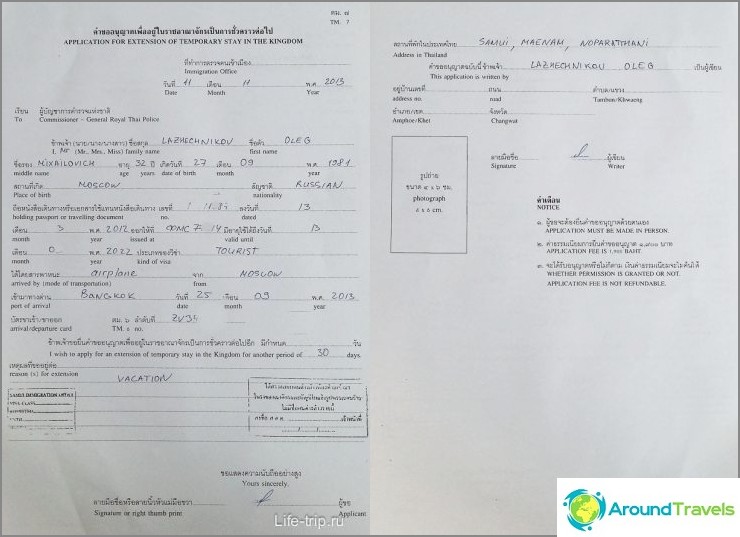 ตม. ๗
TM. 7
คำขออนุญาตเพื่ออยู่ในราชอาณาจักรเป็นการชั่วคราวต่อไป
APPLICATION FOR EXTENSION OF TEMPORARY STAY IN THE KINGDOM
ที่ทำการตรวจคนเข้าเมือง
Immigration Office
วันที่ 11 เดือน 11 พ.ศ. 2013
Date Month Year
เรียน ผู้บัญชาการตำรวจแห่งชาติ
To Commissioner - General Royal Thai Police
ข้าพเจ้า (นาย/นาง/นางสาว) ชื่อสกุล LAZHECHNIKOV ชื่อตัว OLEG
I, (Mr., Mrs., Miss) family name first name
ชื่อรอง MIXAILOVICH อายุ 32 ปี เกิดวันที่ 27 เดือน 09 พ.ศ. 1981
middle name age years date of birth month year
สถานที่เกิด MOSCOW สัญชาติ RUSSIAN
Place of birth nationality
ถือหนังสือเดินทางหรือเอกสารใช้แทนหนังสือเดินทาง เลขที่ ลงวันที่ 13
holding passport or travelling document no. dated
เดือน 3 พ.ศ. 2012 ออกให้ที่ มีอายุใช้ได้ถึงวันที่ 13
month year issued at valid until
เดือน พ.ศ. 2022 ประเภทของวีซ่า TOURIST
month year kind of visa
ได้โดยสารพาหนะ airplane จาก MOSCOW
arrived by (mode of transportation) from
เข้ามาทางด่าน BANGKOK วันที่ 25 เดือน 09 พ.ศ. 2013
port of arrival date month year
บัตรขาเข้า/ขาออก ตม. ๖ ลำดับที่
arrival/departure card TM. ๖ no.
ข้าพเจ้าขอยื่นคำขออนุญาตเพื่ออยู่ในราชอาณาจักรต่อไปอีก มีกำหนด วัน
I wish to apply for an extension of temporary stay in the Kingdom for another period of 30 days.
เหตุผลที่ขออยู่ต่อ
reason (s) for extension
VACATION
SAMUI IMMIGRATION OFFICE
ขอแสดงความนับถืออย่างสูง
Yours sincerely,
ลายมือชื่อหรือลายนิ้วหัวแม่มือขวา ผู้ขอ
Signature or right thumb print Applicant
Life-trip.ru
สถานที่พักในประเทศไทย SAMUI, MAENAM, NOPARATTHANI
Address in Thailand
คำขออนุญาตฉบับนี้ ข้าพเจ้า LAZHECHNIKOV OLEG เป็นผู้เขียน
This application is written by
อยู่บ้านเลขที่ ถนน ตำบล/แขวง
address no. road Tambon/Khwaeng
อำเภอ/เขต จังหวัด
Amphoe/Khet Changwat
รูปถ่าย
ขนาด ๔ x ๖ ซม.
photograph
4 x 6 cm.
ลายมือชื่อ ผู้เขียน
Signature Writer
คำเตือน
NOTICE
๑. ผู้ขอจะต้องยื่นคำขออนุญาตด้วยตนเอง
APPLICATION MUST BE MADE IN PERSON.
๒. ค่าธรรมเนียมการยื่นคำขออนุญาต ๑,๙๐๐ บาท
APPLICATION FEE IS 1,900 BAHT.
๓. จะได้รับอนุญาตหรือไม่ก็ตาม เงินค่าธรรมเนียมจะไม่คืนให้
WHETHER PERMISSION IS GRANTED OR NOT.
APPLICATION FEE IS NOT REFUNDABLE.
AroundTravels